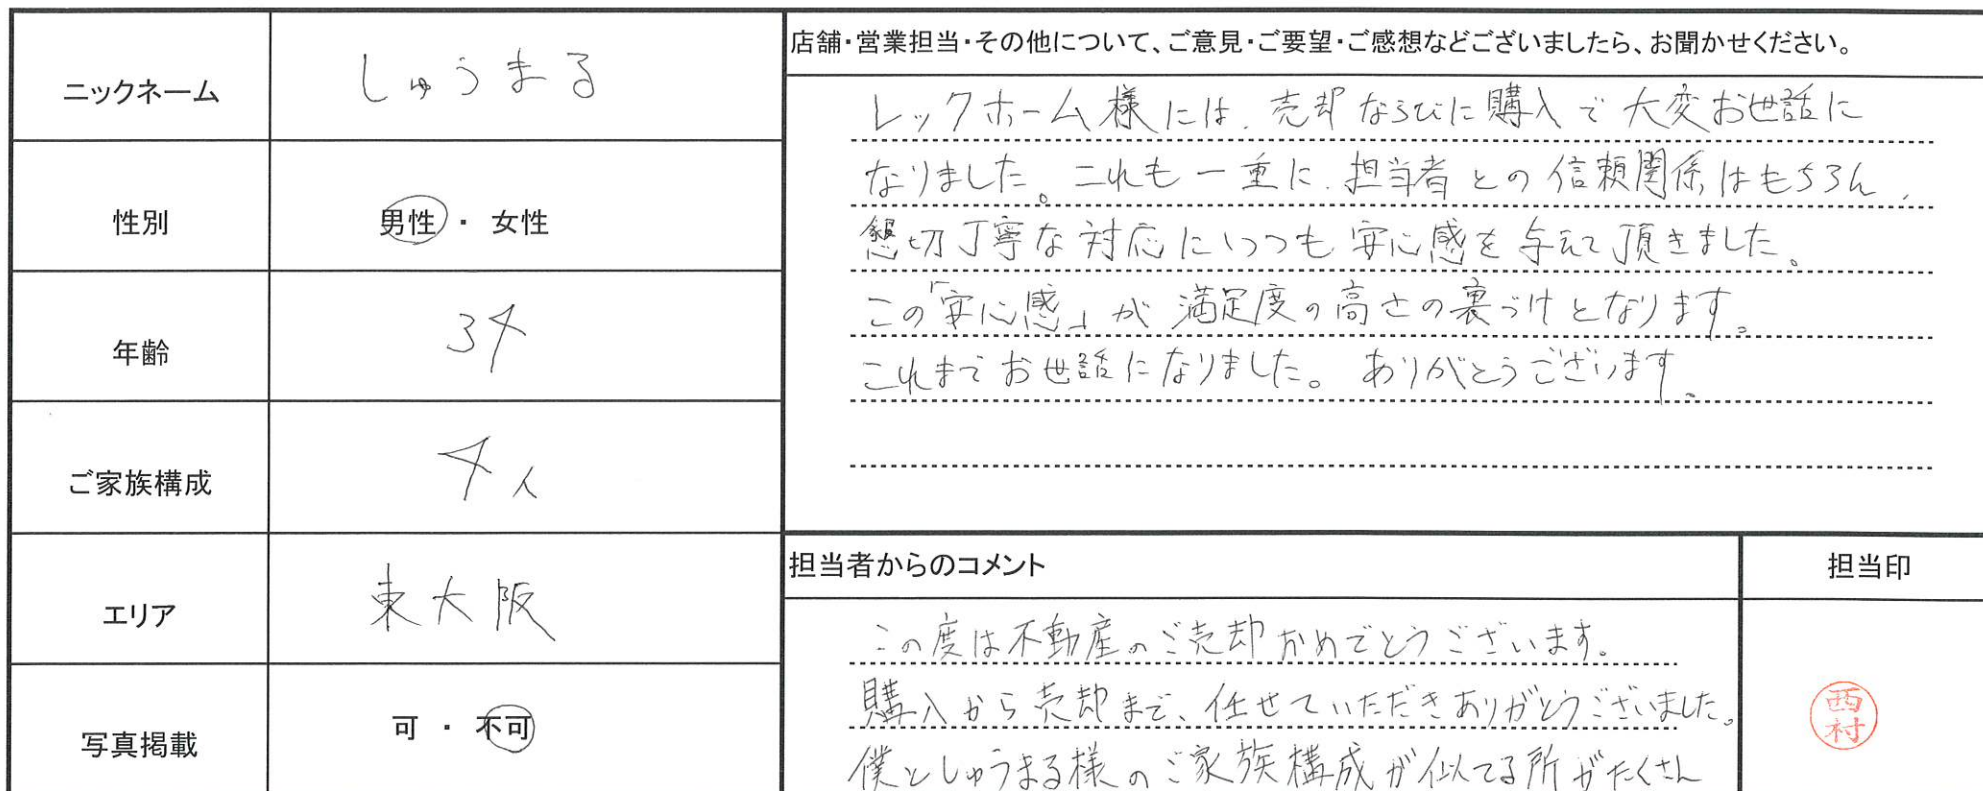 ニックネーム
しゅうまる
性別
男性 ・ 女性
年齢
34
ご家族構成
4人
エリア
東大阪
写真掲載
可 ・ 不可
店舗・営業担当・その他について、ご意見・ご要望・ご感想などございましたら、お聞かせください。
レックホーム様には、売却ならびに購入で大変お世話に
なりました。これも一重に、担当者との信頼関係はもちろん、
懇切丁寧な対応にいつも安心感を与えて頂きました。
この「安心感」が満足度の高さの裏づけとなります。
これまでお世話になりました。ありがとうございます。
担当者からのコメント
この度は不動産のご売却おめでとうございます。
購入から売却まで、任せていただきありがとうございました。
僕としゅうまる様のご家族構成が似てる所がたくさん
担当印
西村